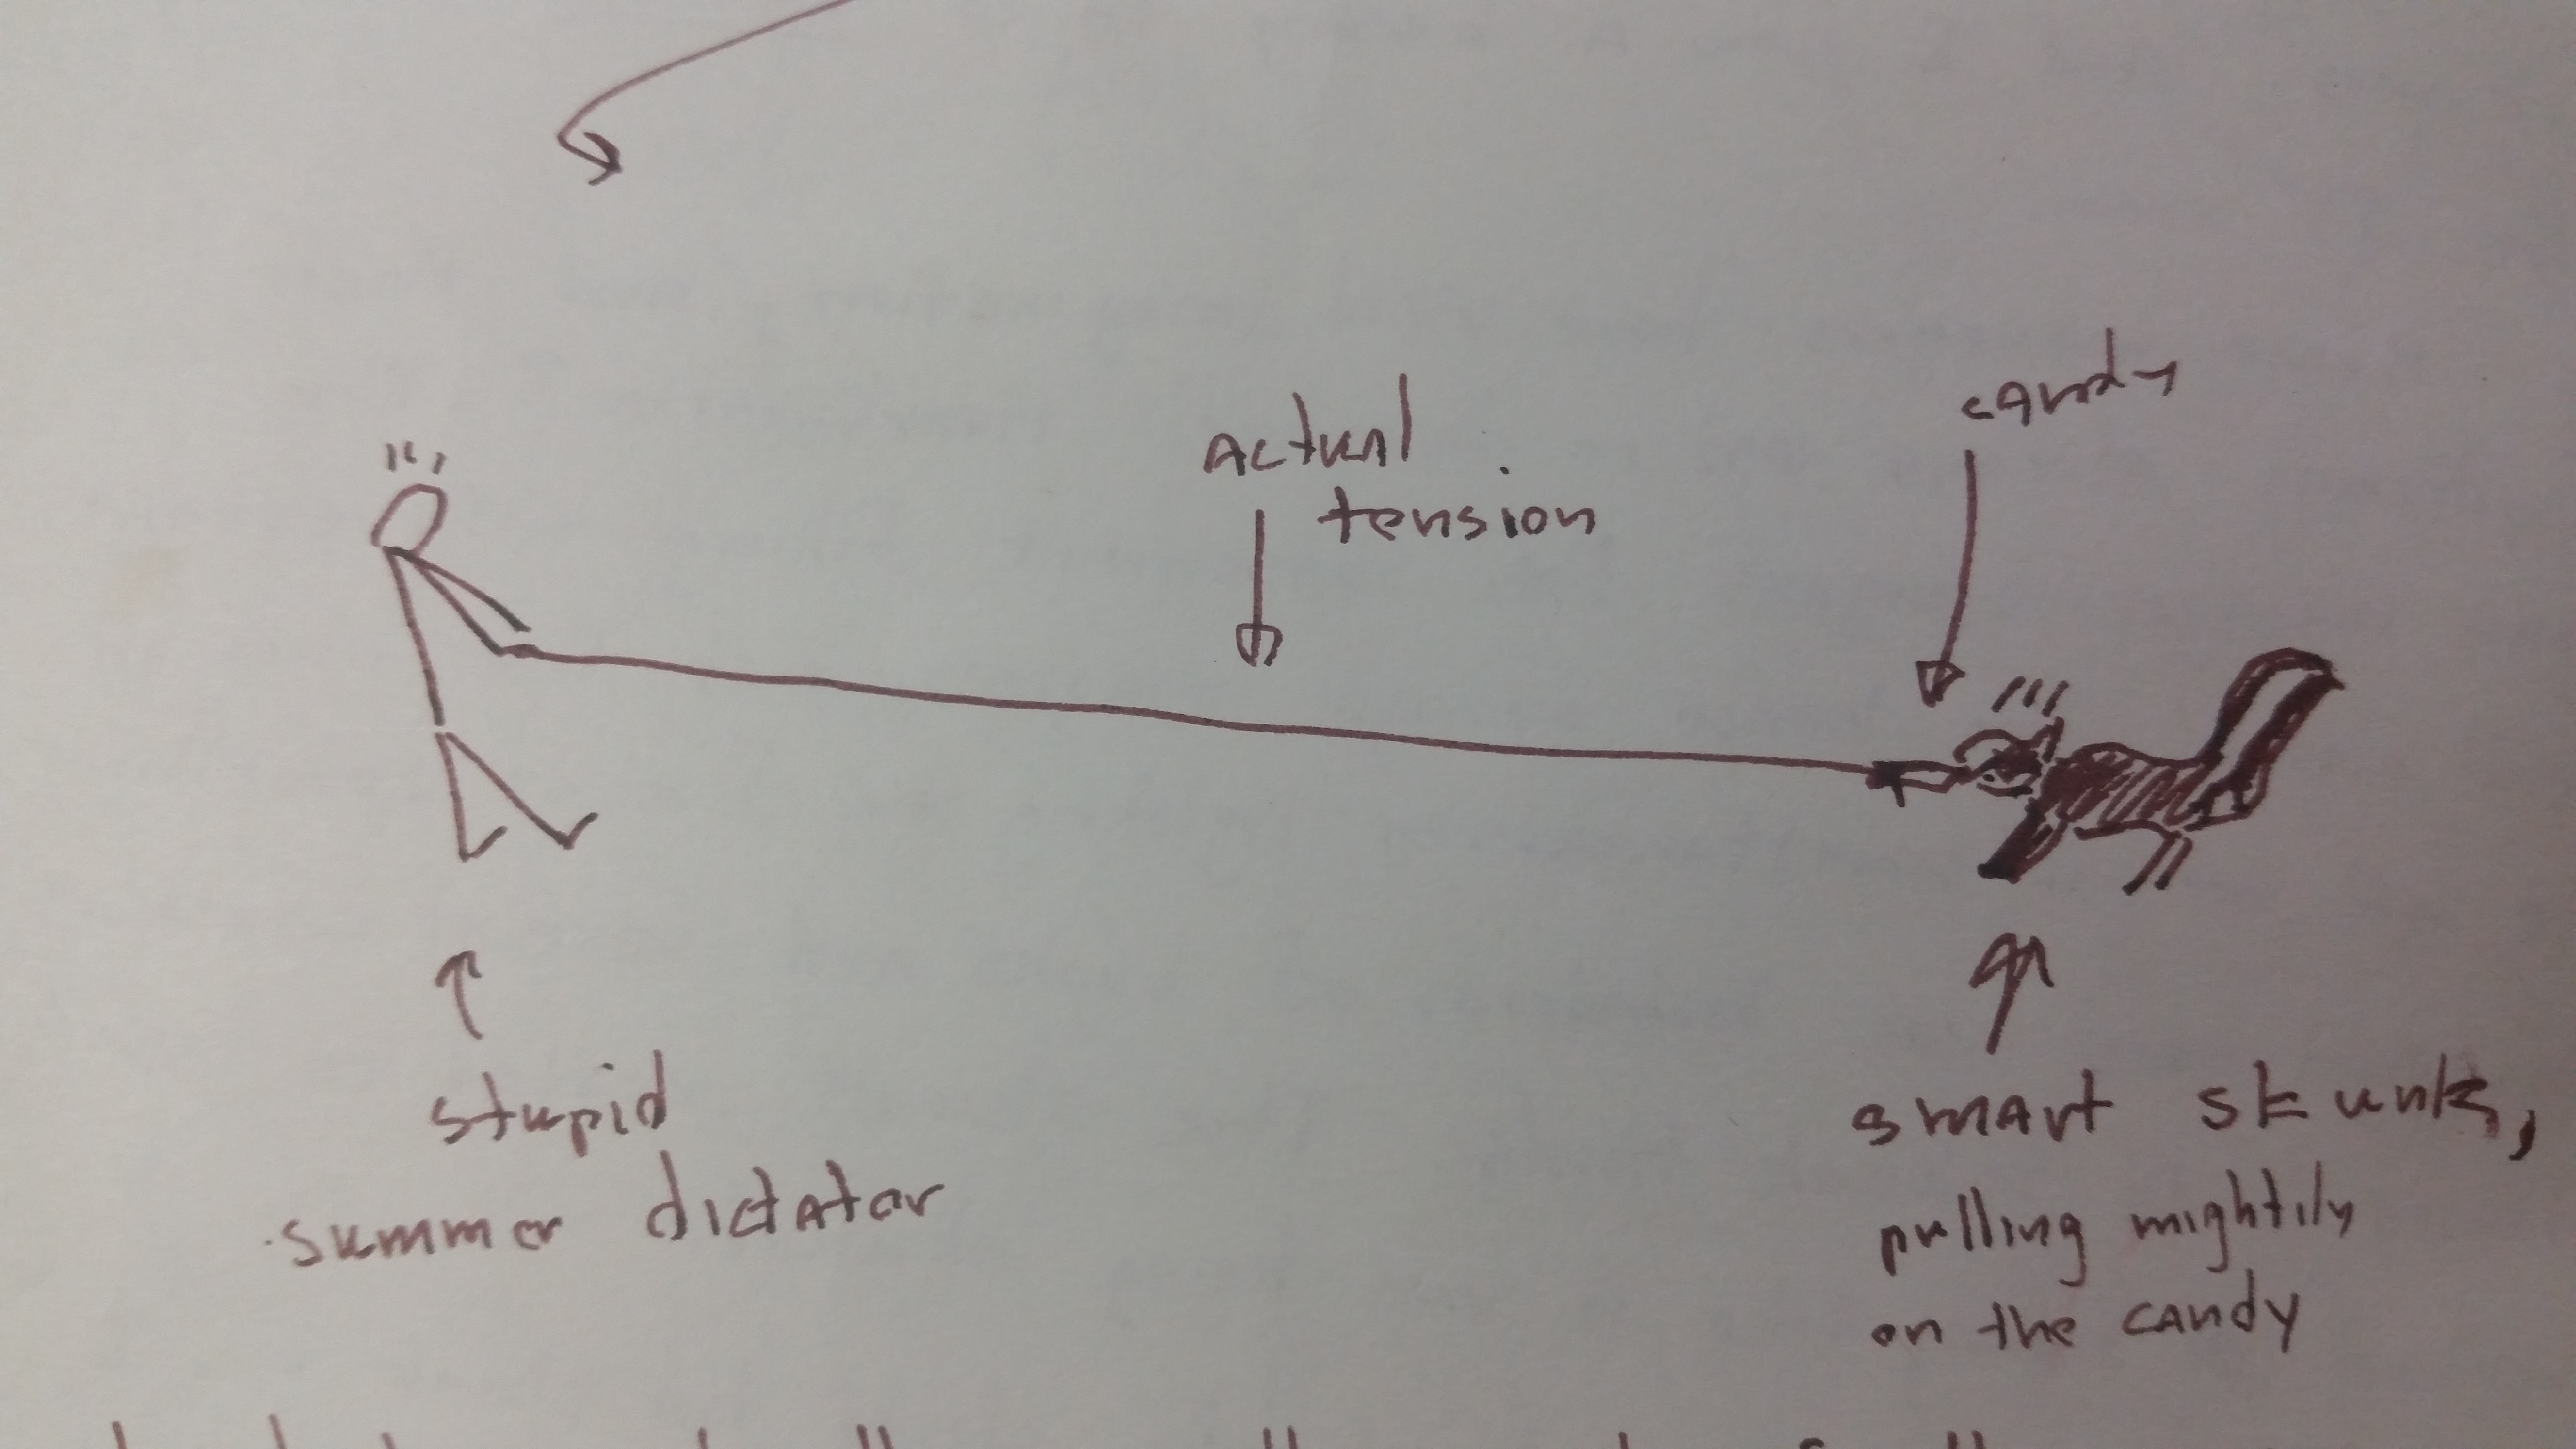 Actual
tension
candy
stupid
summer dictator
smart skunk,
pulling mightily
on the candy